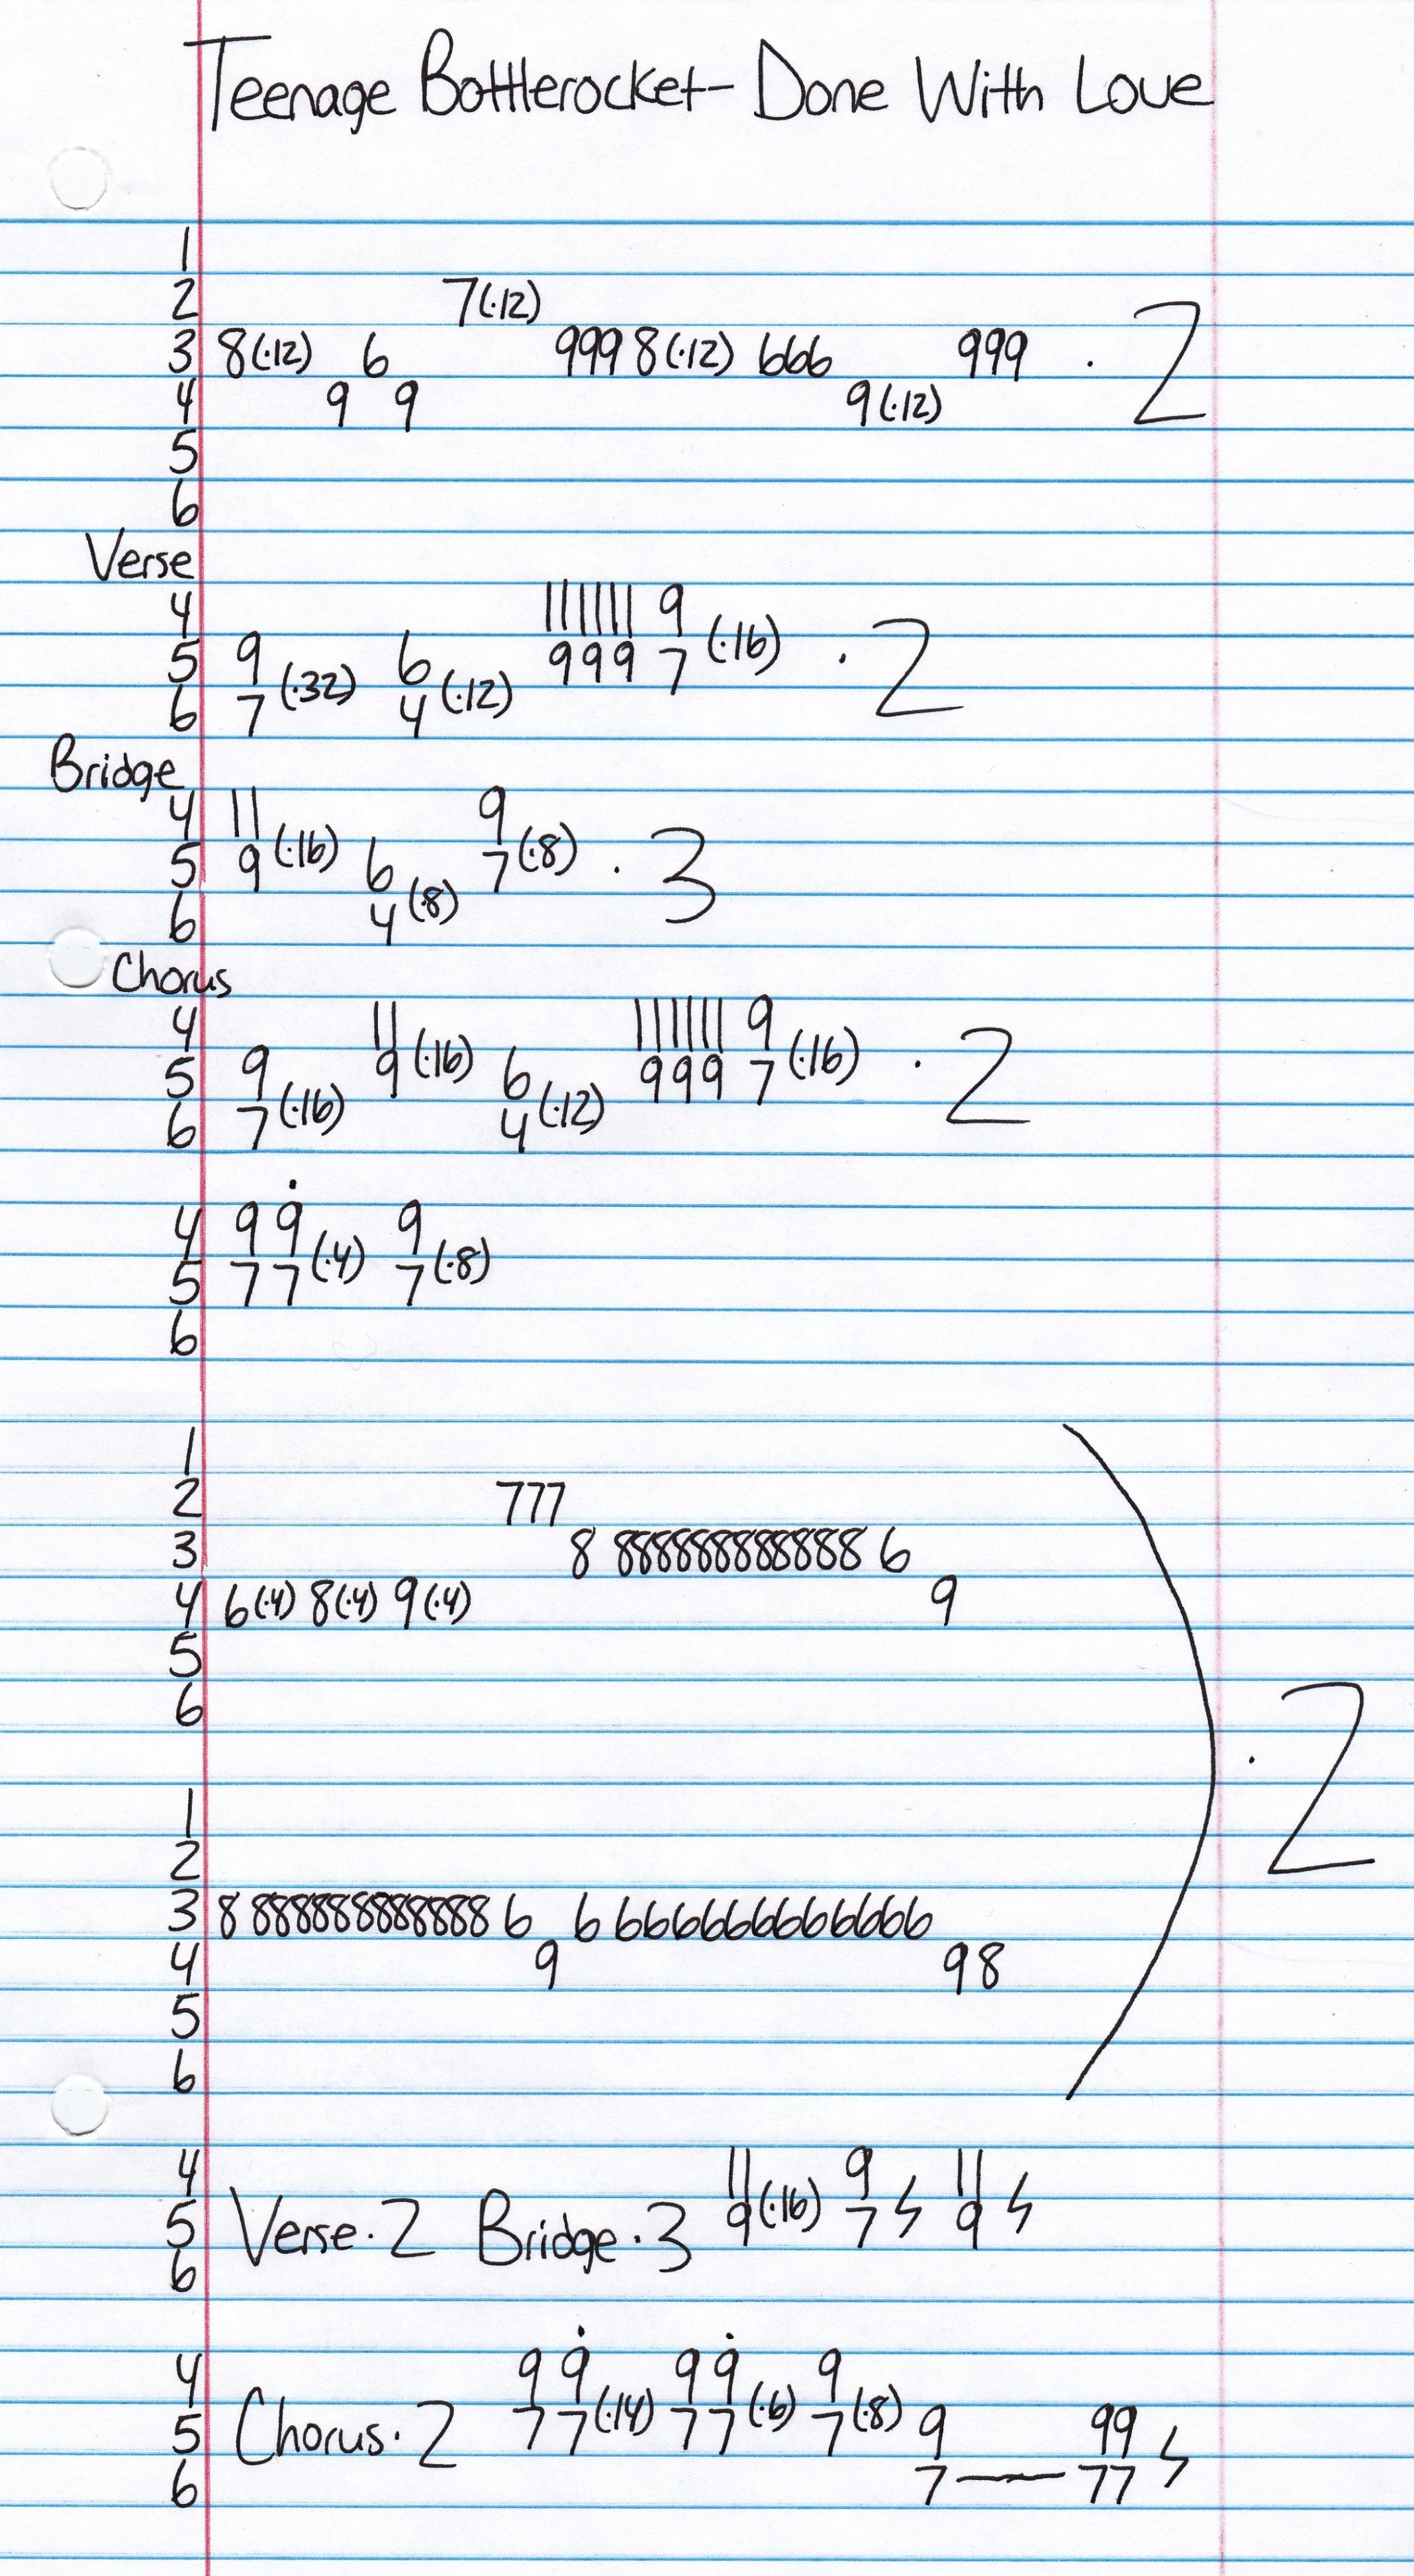 Teenage Bottlerocket- Done With Love
1
2 7(·12)
3 8(·12) 6 999 8(·12) 666 999 · 2
4 9 9 9(·12)
5
6
Verse
4 11 11 11 9
5 9 6 9 9 9 7 (·16) · 2
6 7 (·32) 4 (·12)
Bridge
4 11 9
5 9 (·16) 6 7 (·8) · 3
6 4 (·8)
Chorus
4 11 11 11 11 9
5 9 9 (·16) 6 9 9 9 7 (·16) · 2
6 7 (·16) 4 (·12)
4 9 9
5 7 7 (·4) 7 (·8)
6
1
2 777
3 8 8888888888888 6
4 6(·4) 8(·4) 9(·4) 9
5
6
· 2
1
2
3 8 8888888888888 6 6 666666666666
4 9 98
5
6
4 11 9 11
5 Verse · 2 Bridge · 3 9 (·16) 7 9
6
4 9 9 9 9 9
5 Chorus · 2 7 7 (·14) 7 7 (·6) 7 (·8) 9 99
6 7 — 77